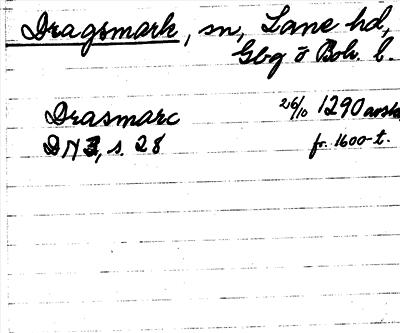 Dragsmark, sn, Lane hd,
Gbg o Boh. l.
Drasmarc 26/10 1290 avskr
DN 3, s. 28 fr. 1600-t.